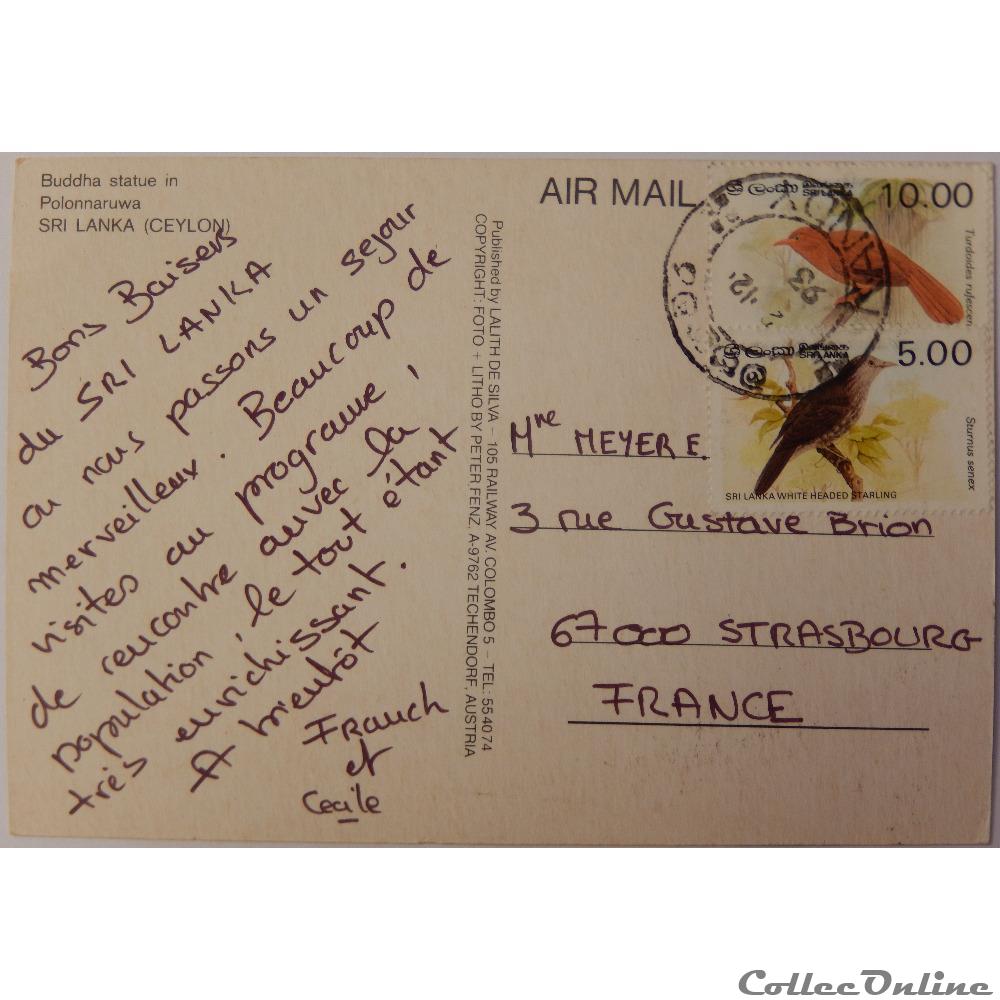 Buddha statue in
Polonnaruwa
SRI LANKA (CEYLON)
Bons Baisers
du SRI LANKA
ou nous passons un sejour
merveilleux. Beaucoup de
visites au programe,
de rencontre auvec la
population, le tout étant
très enrichissant.
A bientôt
Franch
et
Cecile
Published by LALITH DE SILVA – 105 RAILWAY AV. COLOMBO 5 – TEL: 554074
COPYRIGHT: FOTO + LITHO BY PETER FENZ, A-9762 TECHENDORF, AUSTRIA
AIR MAIL
ශ්‍රී ලංකා இலங்கை
SRI LANKA
10.00
Turdoides rufescen
12
93
ශ්‍රී ලංකා இலங்கை
SRI LANKA
5.00
Sturnus senex
SRI LANKA WHITE HEADED STARLING
Mme MEYER E.
3 rue Gustave Brion
67000 STRASBOURG
FRANCE
CollecOnline